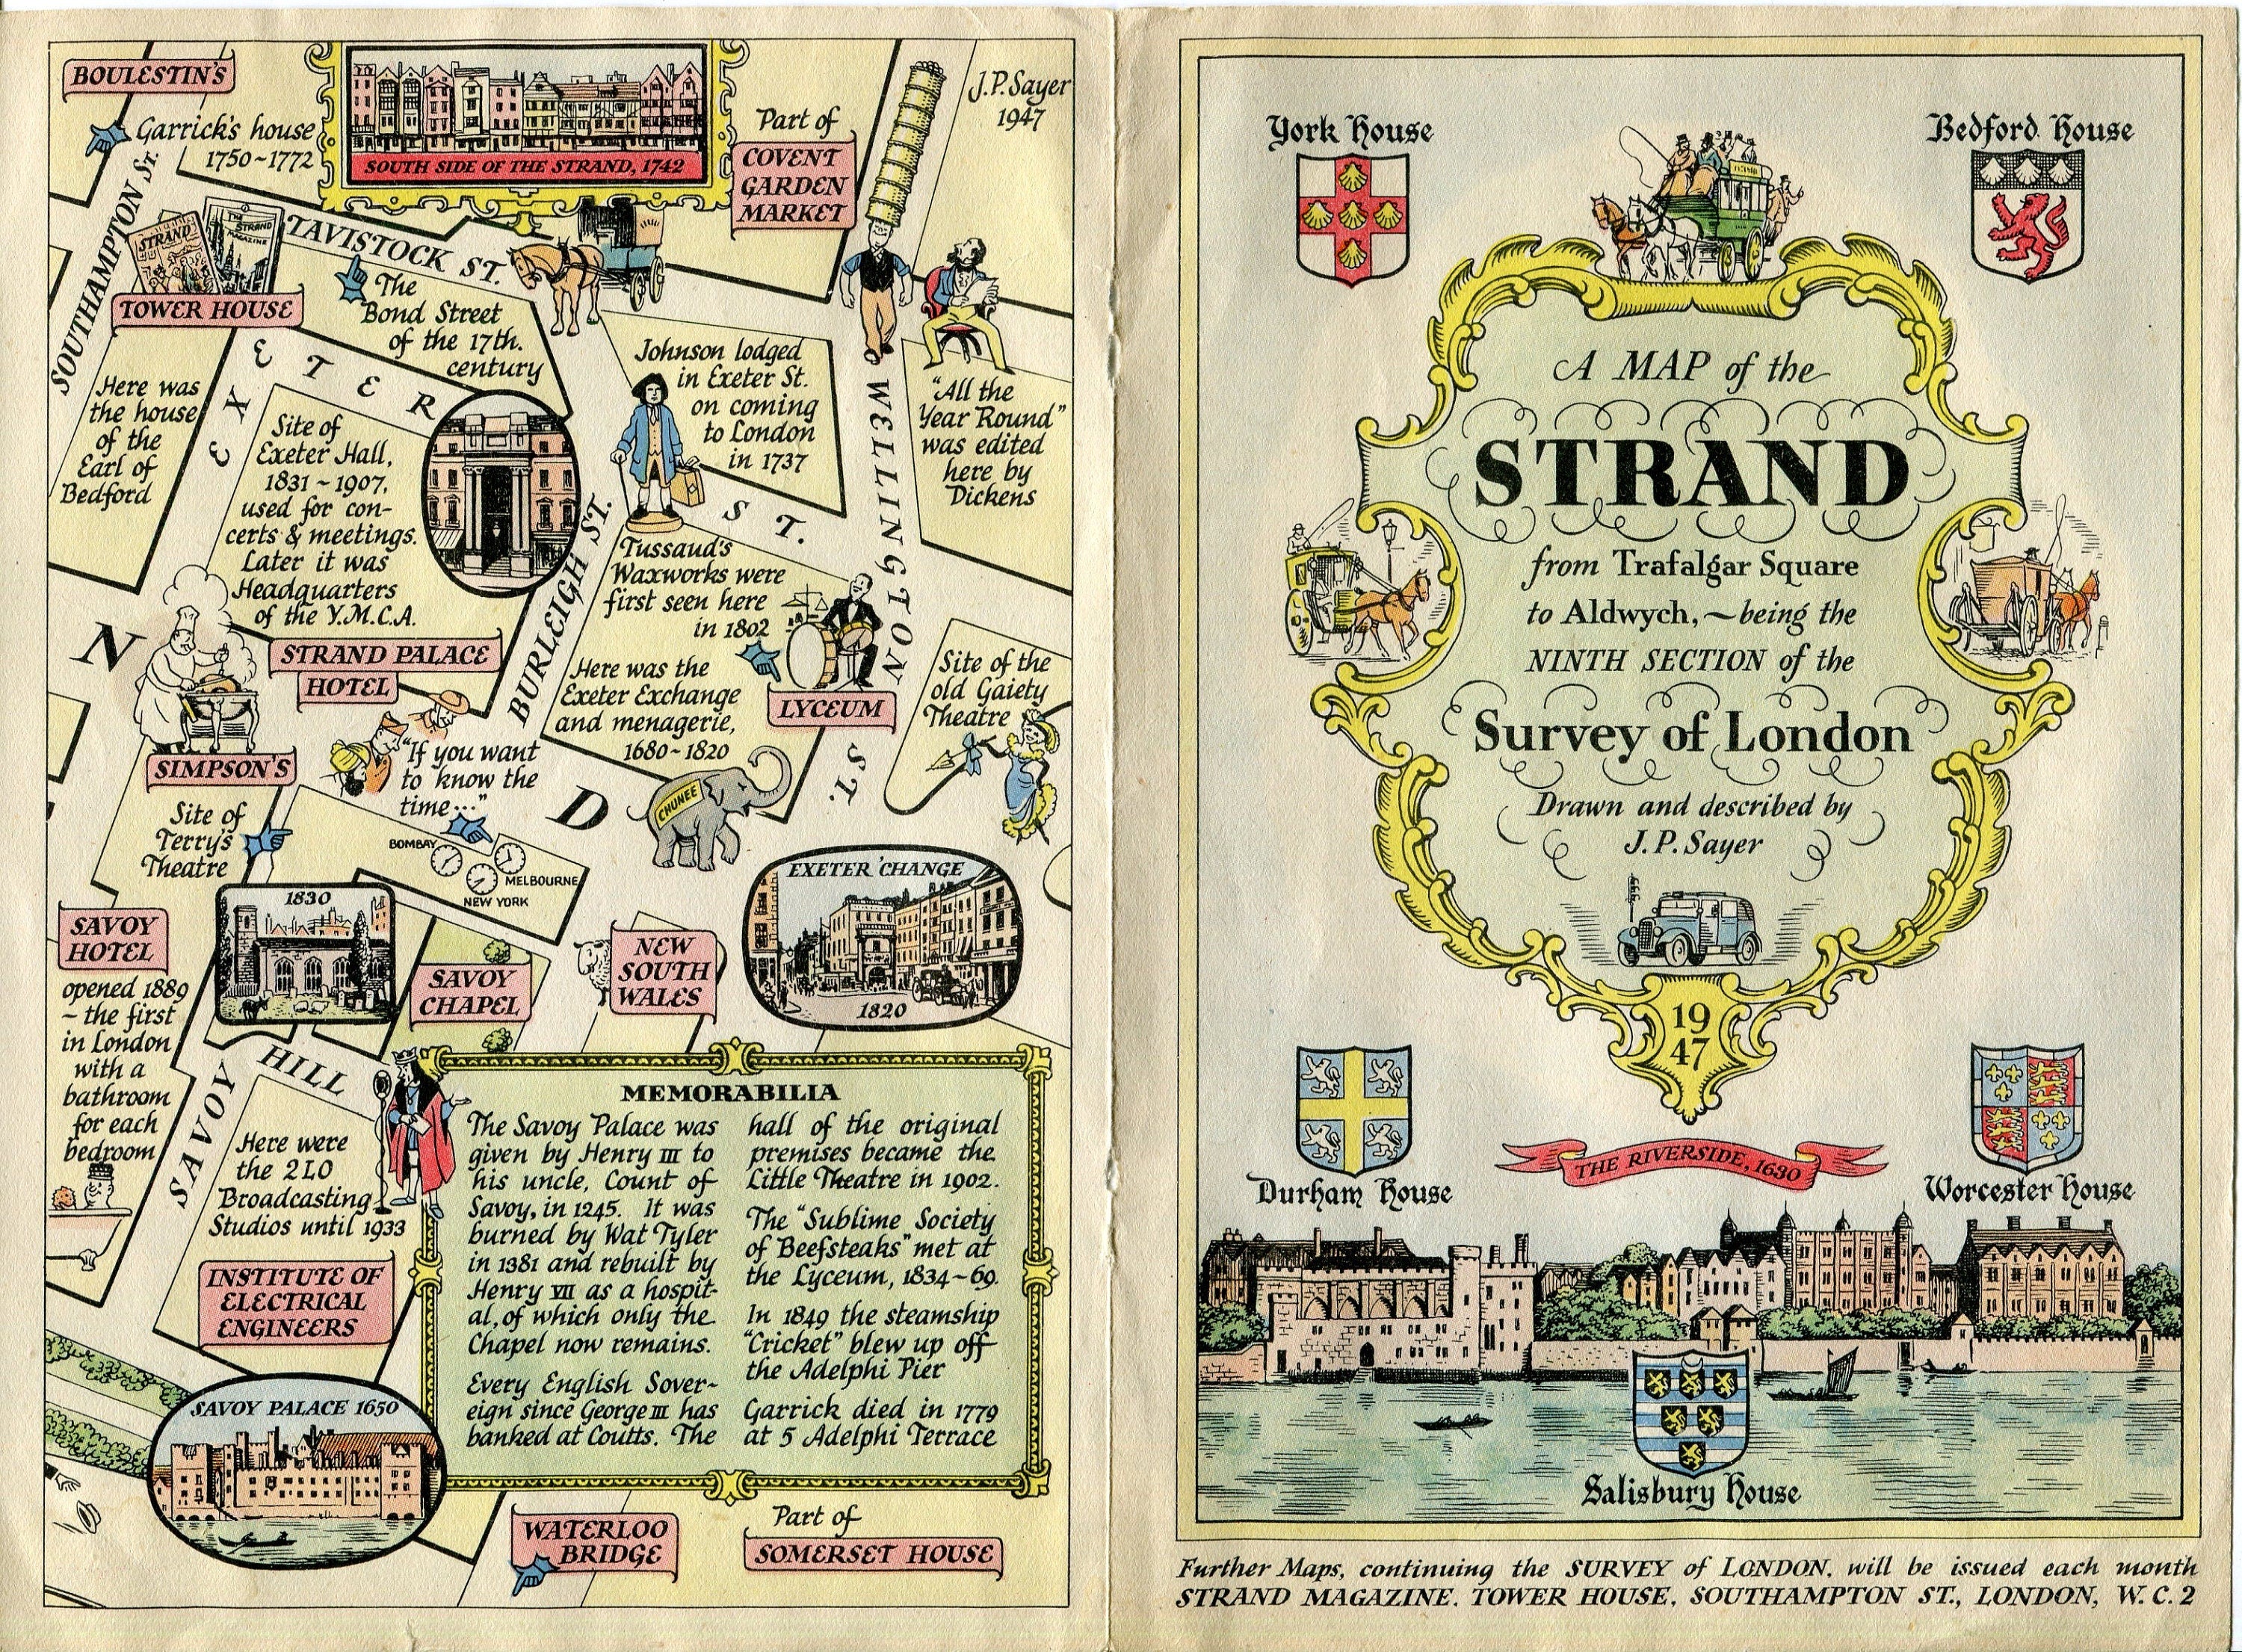 BOULESTIN'S
Garrick's house
1750~1772
SOUTH SIDE OF THE STRAND, 1742
Part of
COVENT
GARDEN
MARKET
J.P.Sayer
1947
SOUTHAMPTON ST.
STRAND
THE STRAND
MAGAZINE
TOWER HOUSE
TAVISTOCK ST.
The
Bond Street
of the 17th.
century
EXETER ST.
Here was
the house
of the
Earl of
Bedford
Site of
Exeter Hall,
1831~1907,
used for con-
certs & meetings.
Later it was
Headquarters
of the Y.M.C.A.
Johnson lodged
in Exeter St.
on coming
to London
in 1737
WELLINGTON ST.
"All the
Year Round"
was edited
here by
Dickens
BURLEIGH ST.
Tussaud's
Waxworks were
first seen here
in 1802
Here was the
Exeter Exchange
and menagerie,
1680~1820
LYCEUM
Site of the
old Gaiety
Theatre
N
D
STRAND PALACE
HOTEL
SIMPSON'S
"If you want
to know the
time..."
CHUNEE
Site of
Terry's
Theatre
BOMBAY
MELBOURNE
NEW YORK
EXETER 'CHANGE
1820
1830
SAVOY
HOTEL
opened 1889
~ the first
in London
with a
bathroom
for each
bedroom
SAVOY
CHAPEL
NEW
SOUTH
WALES
SAVOY HILL
Here were
the 2LO
Broadcasting
Studios until 1933
INSTITUTE OF
ELECTRICAL
ENGINEERS
SAVOY PALACE 1650
MEMORABILIA
The Savoy Palace was
given by Henry III to
his uncle, Count of
Savoy, in 1245. It was
burned by Wat Tyler
in 1381 and rebuilt by
Henry VII as a hospit-
al, of which only the
Chapel now remains.
Every English Sover-
eign since George III has
banked at Coutts. The
hall of the original
premises became the
Little Theatre in 1902.
The "Sublime Society
of Beefsteaks" met at
the Lyceum, 1834~69.
In 1849 the steamship
"Cricket" blew up off
the Adelphi Pier
Garrick died in 1779
at 5 Adelphi Terrace
WATERLOO
BRIDGE
Part of
SOMERSET HOUSE
York House
Bedford House
A MAP of the
STRAND
from Trafalgar Square
to Aldwych, ~ being the
NINTH SECTION of the
Survey of London
Drawn and described by
J.P.Sayer
19
47
Durham House
THE RIVERSIDE, 1630
Worcester House
Salisbury House
Further Maps, continuing the SURVEY of LONDON, will be issued each month
STRAND MAGAZINE. TOWER HOUSE, SOUTHAMPTON ST., LONDON, W.C.2